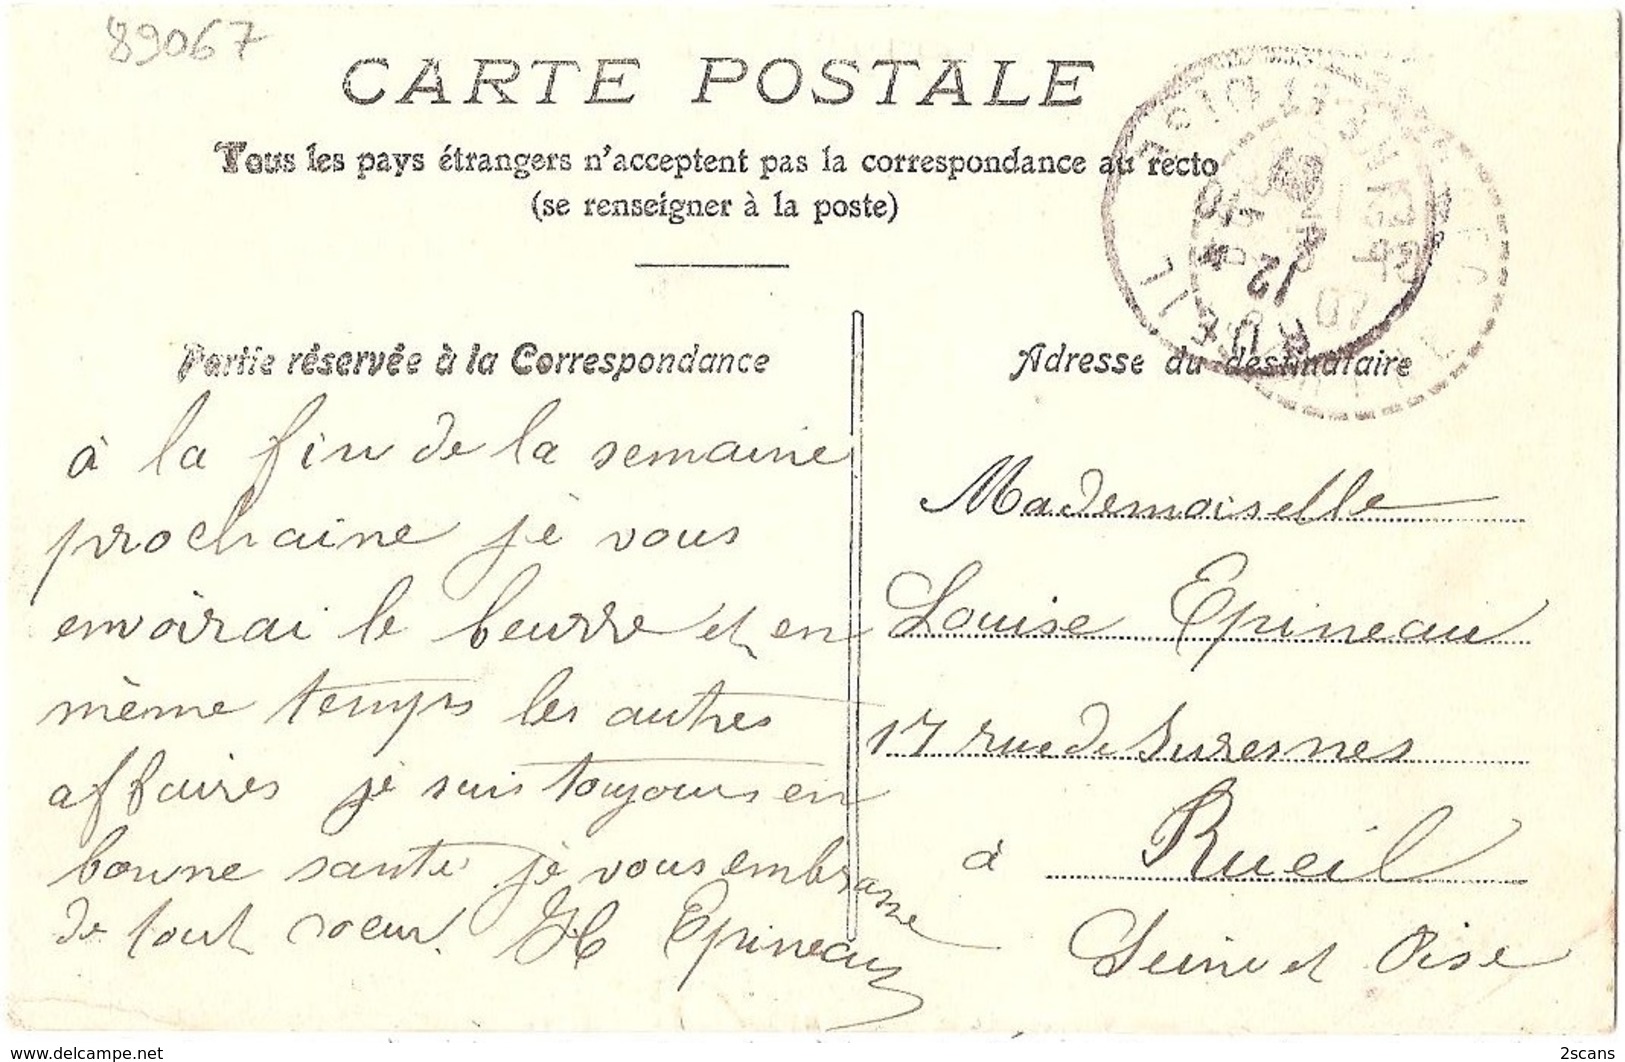 89067
CARTE POSTALE
Tous les pays étrangers n'acceptent pas la correspondance au recto
(se renseigner à la poste)
Partie réservée à la Correspondance
Adresse du destinataire
à la fin de la semaine
prochaine je vous
envoirai le beurre et en
même temps les autres
affaires je suis toujours en
bonne santé je vous embrasse
de tout coeur. H Epineau
Mademoiselle
Louise Epineau
17 rue de Suresnes
à Rueil
Seine et Oise
RUEIL
12
07
delcampe.net
2scans